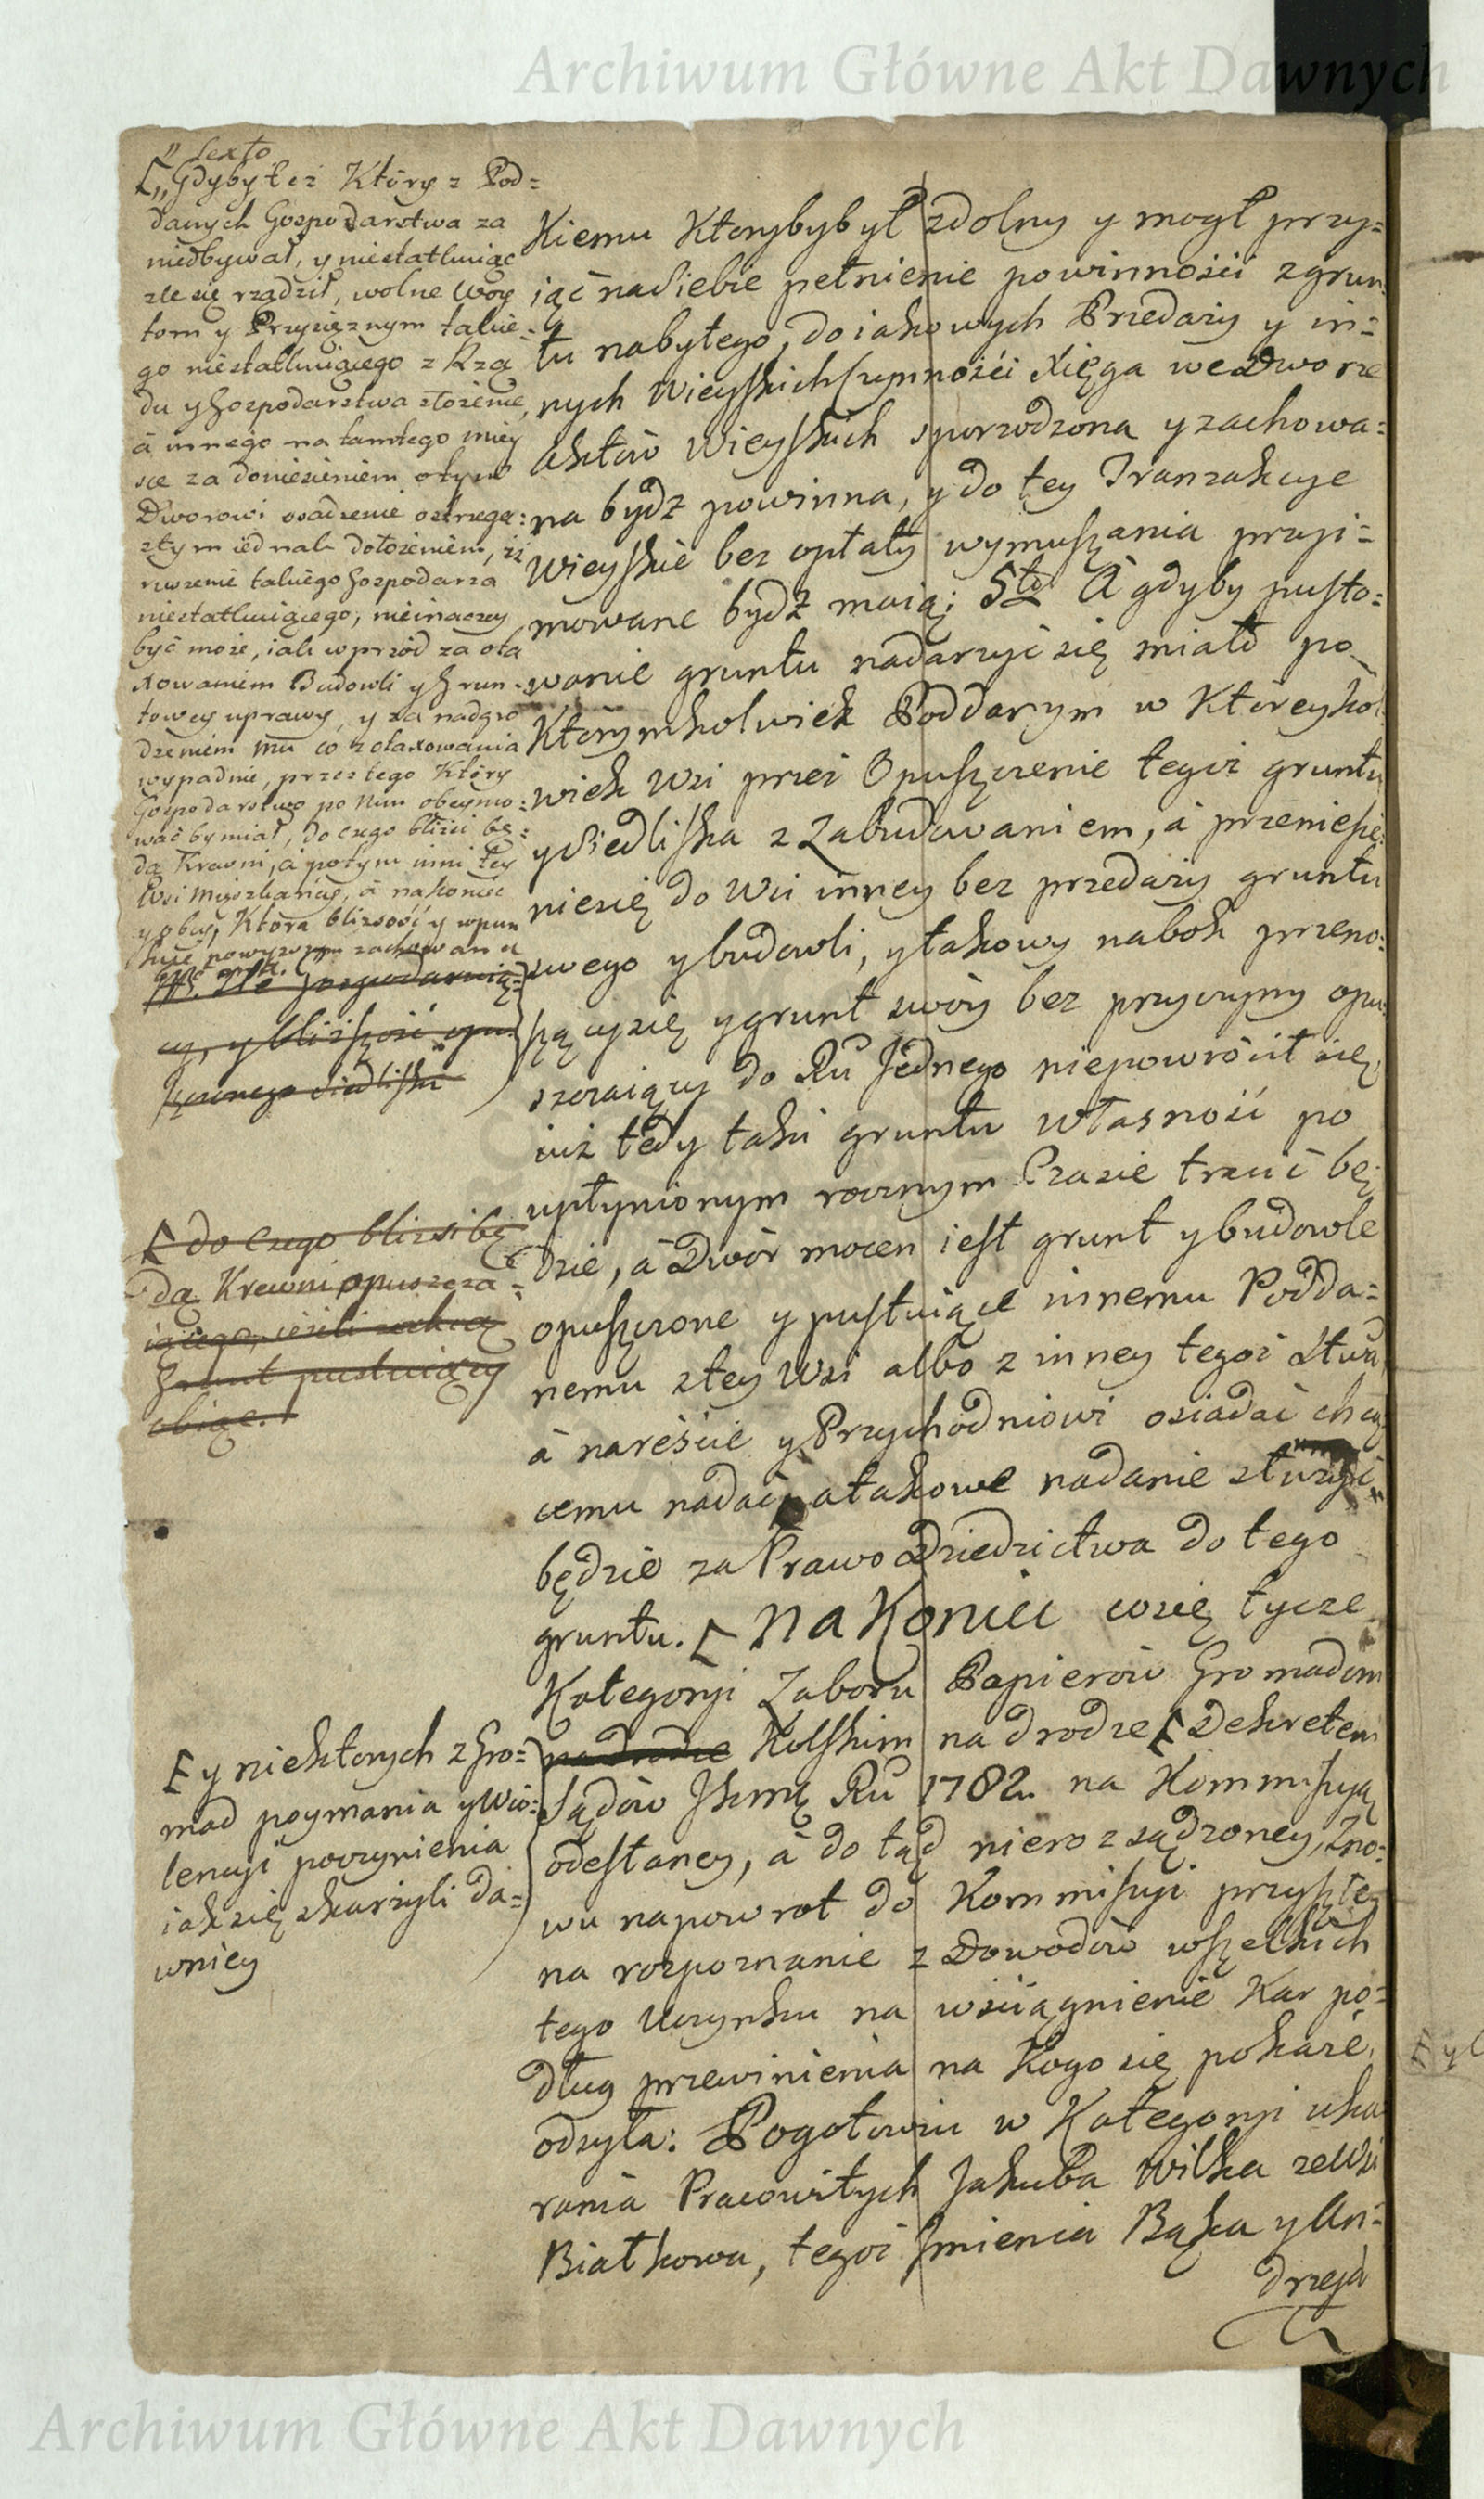 Archiwum Główne Akt Dawnych
„ Sexto
[„Gdyby też Który z Pod=
danych Gospodarstwa za
niedbywał, y niestatkuiąc
zle się rządził, wolne Woy
tom y Przysięznym takie=
go niestatkuiącego z Rzą
du y Gospodarstwa złożenie,
á innego na tamtego miey
sce za doniesieniem o tym
Dworowi osadzenie ostrzega:
z tym iednak dołożeniem, iż
ruszenie takiego Gospodarza
niestatkuiącego, nieinaczey
być może, iak wprzód za ota
xowaniem Budowli y Grun=
towey uprawy, y za nadgro
dzeniem mu co z otaxowania
wypadnie, przez tego Który
Gospodarstwo po Nim obeymo=
wać by miał, do czego bliżsi bę=
dą Krewni, á potym inni tey
Wsi Mięszkańcy, á nakoniec
y obcy, Która blizsość y w pun
kcie powyższym zachowana
być ma.
źle Gospodaruią=
cy, y bliższość opu
szczonego Siedliska
[do czego blizsi bę
dą Krewni opuszcza=
iącego, ieżeli zechcą
Grunt pustuiący
obiąć.
[y niektorych z Gro=
mad poymania y Wio=
lencyi poczynienia
iak się skarżyli da=
wniey
Kiemu Ktorybybył zdolny y mogł przy=
iąć na Siebie pełnienie powinności z grun
tu nabytego, do iakowych Przedaży y in=
nych Wieyskich czynności Xięga we Dworze
Aktów Wieyskich sporządzona y zachowa=
na bydź powinna, y do tey Tranzakcye
Wieyskie bez opłaty wymuszania przyi=
mowane bydź maią; 5to A gdyby pusto=
wanie gruntu nadarzyć się miało po
Którymkolwiek Poddanym w Któreykol
wiek Wsi przez Opuszczenie tegoż gruntu
y Siedliska z Zabudowaniem, á przeniesie=
nie się do Wsi inney bez przedaży gruntu
swego y budowli, y takowy na bok przeno=
szący się y grunt swóy bez przyczyny opu
szczaiący do Ru Jednego niepowrócił się,
iuż tedy taki gruntu własność po
upłynionym rocznym Czasie tracić bę=
dzie, á Dwór mocen iest grunt y budowle
opuszczone y pustuiące innemu Podda=
nemu z tey Wsi albo z inney tegoż Stwa,
á nareście y Przychodniowi osiadać chcą
cemu nadać, a takowe nadanie służyć
będzie za Prawo Dziedzictwa do tego
gruntu. [Na Koniec co się tycze
Kategoryi Zaboru Papierów Gromadom
na drodze Kolskim na drodze [Dekretem
Sądów Jkmć Ru 1782. na Kommissyą
odesłaney, á do tąd nierozsądzoney, zno=
wu napowrot do Kommissyi przyszłey
na rozpoznanie z Dowodów wszelkich
tego Uczynku na wściągnienie Kar po=
dług przewinienia na Kogo się pokaże,
odsyła: Pogotowiu w Kategoryi uka
rania Pracowitych Jakuba Wilka ze Wsi
Białkowa, tegoż Jmienia Bąka y An=
drzeja
Archiwum Główne Akt Dawnych